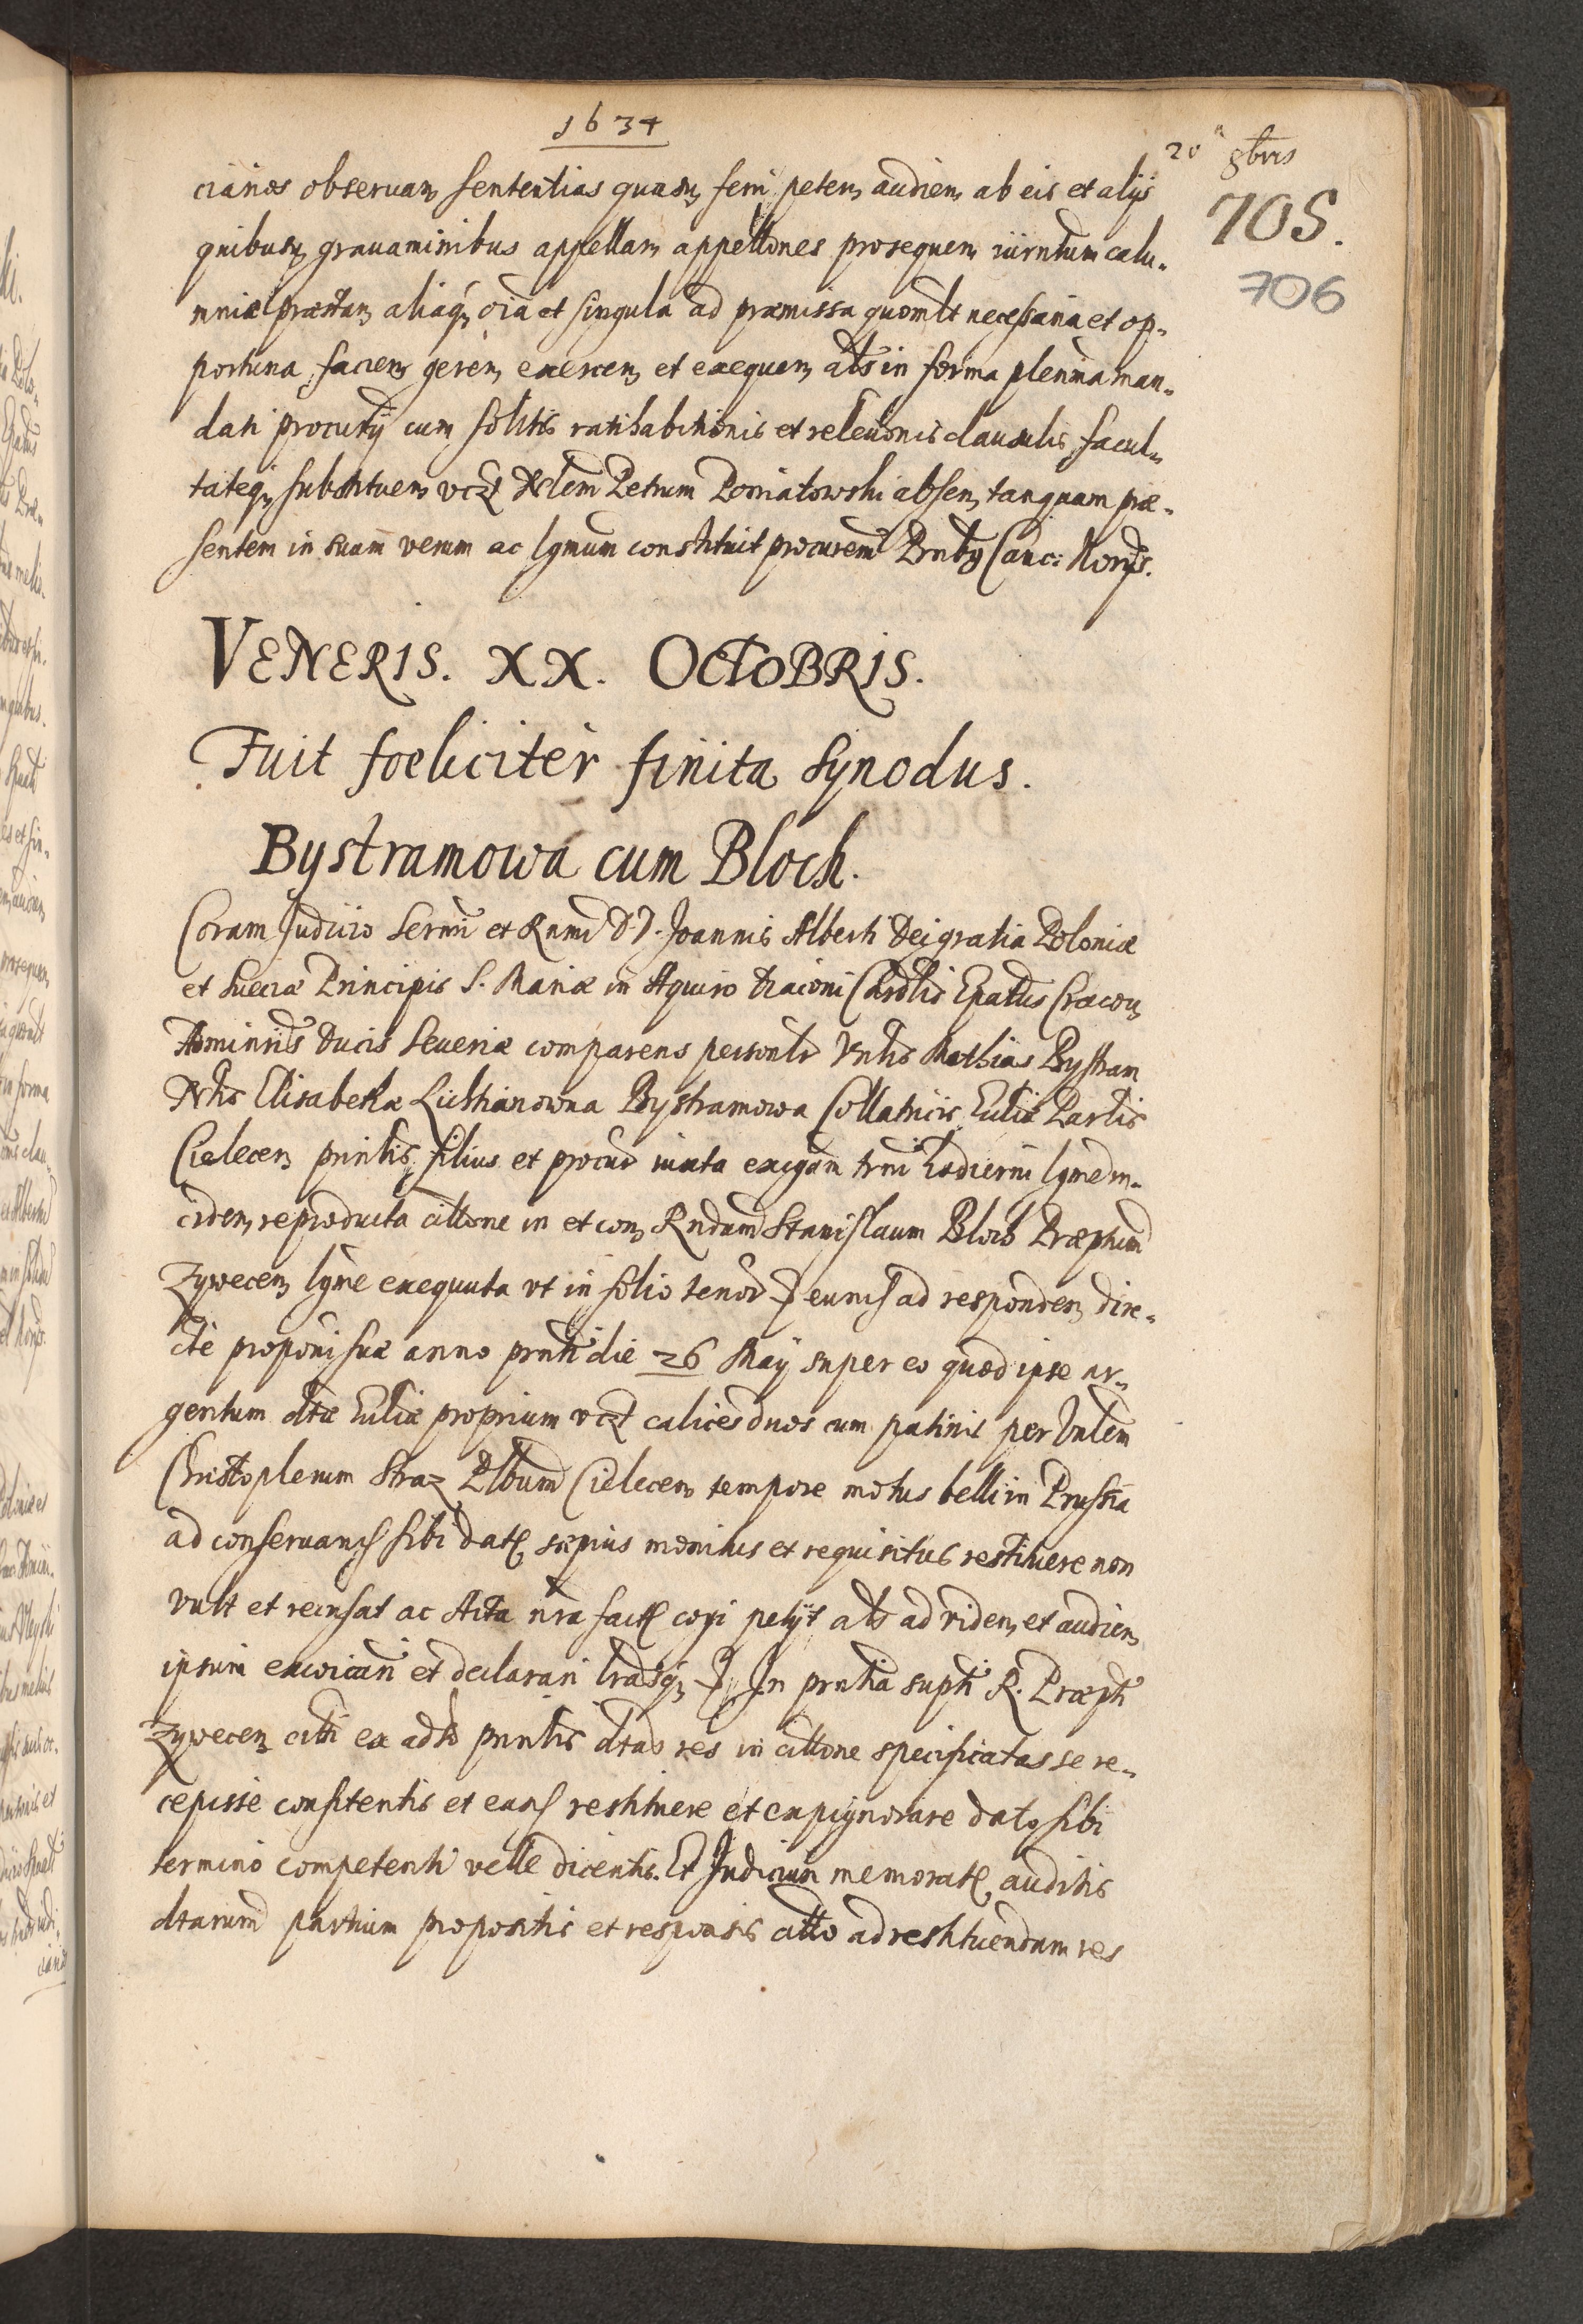 1634
20a 8bris
705.
706
cianos observan, sententias quasn, ferri peten, audien, ab eis et alijs
quibusn, grauaminibus appellan, appellones prosequen, iurntum calu-
mniæ præstan, aliaq, oia et singula ad præmissa quomlt necessaria et op-
portuna facien, geren, exercen, et exequen, als in forma plenna man-
dati procurij cum solitis ratihabitionis et releuonis clausulis, facul-
tateq, substituen, vczt Nlem Petrum Poniatowski absen, tanquam præ-
sentem in suam verum ac lgmum constituit procurem Pntbg Canc: Norijs.
VENERIS. XX. OCTOBRIS.
Fuit foeliciter finita Synodus.
Bystramowa cum Bloch.
Coram Judicio Sermi et Rnmi D. D. Joannis Alberti Dei gratia Poloniæ
et Sueciæ Principis S. Mariæ in Aquiro Diaconi Cardlis Epatus Cracovn,
Adminris Ducis Seueriæ comparens personlr Vrnlis Mathias Bystram
Nlis Elisabethæ Bystramowa Collatricis Ecliæ Parlis
Cielecen, prinlis, filius et procur iuxta exigam trni hodierni lgme in-
ciden, reproducta cittone in et con, Rndum Stanislaum Bloch Præptum
Zywecen, lgme exequuta vt in folio tenor eunck ad responden, dire-
cte proponi suæ anno prnti die 26 Maij super eo quod ipse ar-
gentum dtæ Ecliæ proprium vczt calices duos cum patinis per Vnlem
Christopherum Straz Plbum Cielecen, tempore motus belli in Prussia
ad conseruanck sibi dat, sæpius monitus et requisitus restituere non
vult et recusat ac Acta nra fact, cogi petijt als ad viden, et audien,
ipsum excoicari et declarari lrasq, In prntia supti R. Præpti
Zywecen, citti ex adso prinlis dtas res in cittone specificatas se re-
cepisse confitentis et eask restituere et expignorare dato sibi
termino competenti velle dicentis. Et Judicium memorat, auditis
dtarum partium propositis et responsis citto ad restituendum res